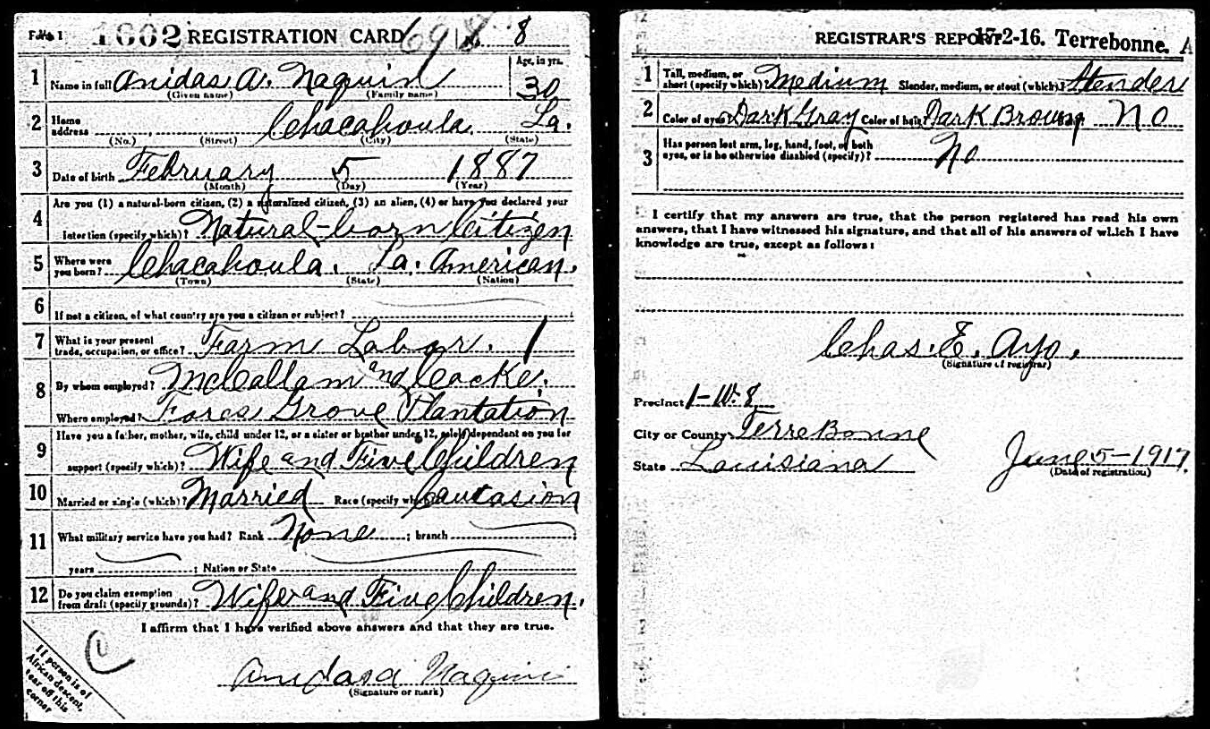 Form 1 1602 REGISTRATION CARD 8
1 Name in full Anidas A. Naquin Age, in yrs. 30
(Given name) (Family name)
2 Home address Chacahoula La.
(No.) (Street) (City) (State)
3 Date of birth February 5 1887
(Month) (Day) (Year)
4 Are you (1) a natural-born citizen, (2) a naturalized citizen, (3) an alien, (4) or have you declared your
intention (specify which)? Natural-born Citizen
5 Where were you born? Chacahoula. La. American.
(Town) (State) (Nation)
6 If not a citizen, of what country are you a citizen or subject?
7 What is your present trade, occupation, or office? Farm Labor. 1
8 By whom employed? McCallam and Cocke.
Where employed? Grove Plantation
9 Have you a father, mother, wife, child under 12, or a sister or brother under 12, solely dependent on you for
support (specify which)? Wife and Five Children
10 Married or single (which)? Married Race (specify which)? Caucasion
11 What military service have you had? Rank None ; branch
years ; Nation or State
12 Do you claim exemption from draft (specify grounds)? Wife and Five Children.
I affirm that I have verified above answers and that they are true.
Anidas A Naquin
(Signature or mark)
If person is of
African descent,
tear off this
corner
REGISTRAR'S REPORT 17-2-16. Terrebonne. A
1 Tall, medium, or short (specify which)? Medium Slender, medium, or stout (which)? Slender
2 Color of eyes Dark Gray Color of hair Dark Brown No
3 Has person lost arm, leg, hand, foot, or both
eyes, or is he otherwise disabled (specify)? No
I certify that my answers are true, that the person registered has read his own
answers, that I have witnessed his signature, and that all of his answers of which I have
knowledge are true, except as follows:
Chas. E. Ayo.
(Signature of registrar)
Precinct 1-W. 8
City or County TerreBonne
State Louisiana June 5-1917.
(Date of registration)